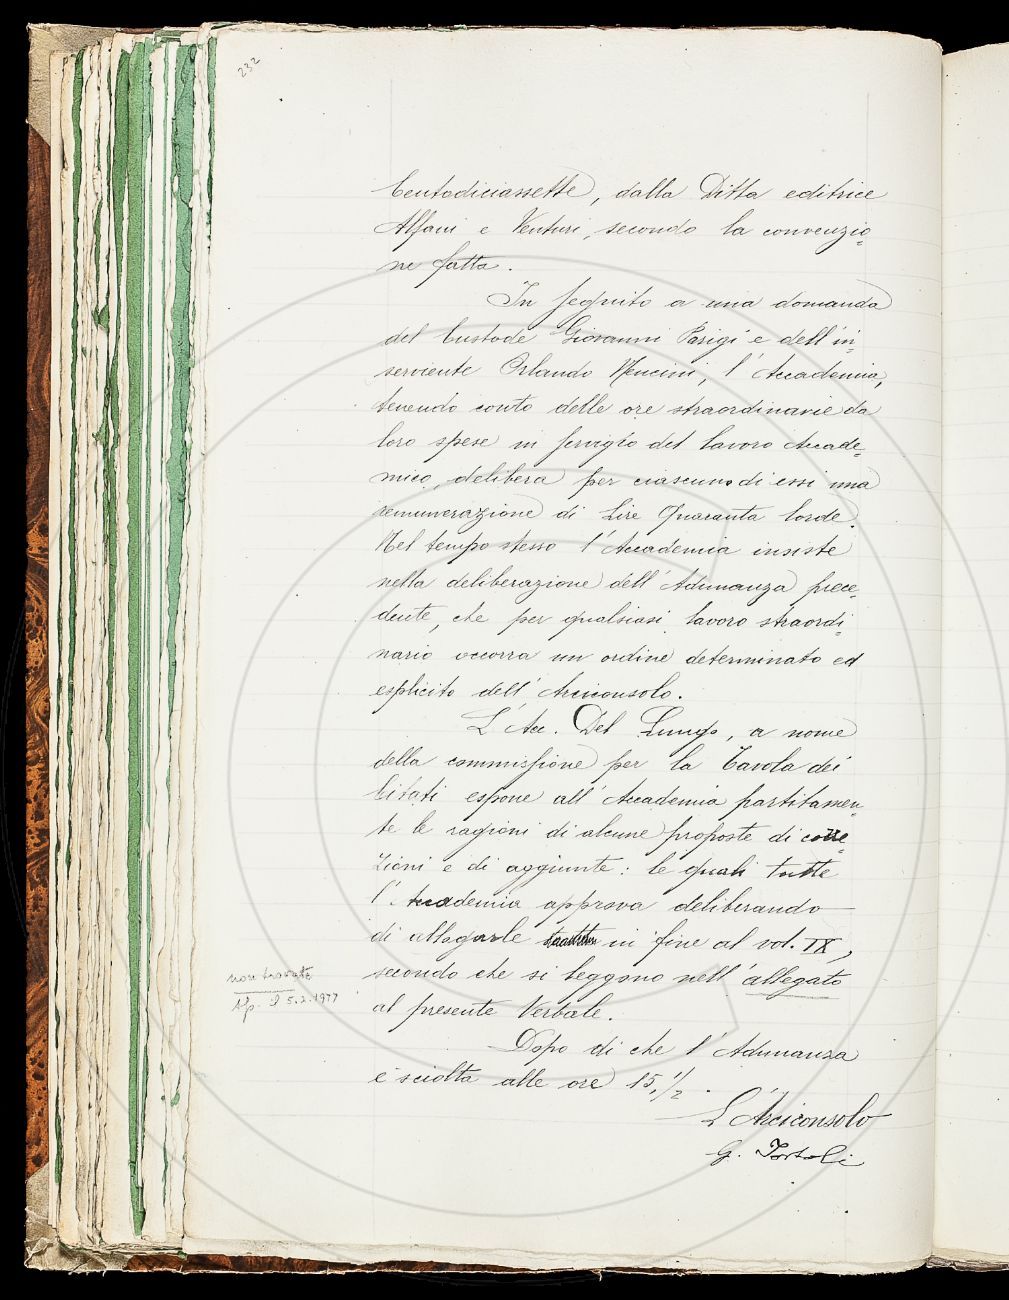 232
Centodiciassette, dalla Ditta editrice
Alfani e Venturi, secondo la convenzio=
ne fatta.
In seguito a una domanda
del Custode Giovanni Parigi e dell'in=
serviente Orlando Mencini, l'Accademia,
tenendo conto delle ore straordinarie da
loro spese in servigio del lavoro Accade=
mico, delibera per ciascuno di essi una
remunerazione di Lire Quaranta lorde.
Nel tempo stesso l'Accademia insiste
nella deliberazione dell'Adunanza prece=
dente, che per qualsiasi lavoro straordi=
nario occorra un ordine determinato ed
esplicito dell'Arciconsolo.
L'Acc. Del Lungo, a nome
della commissione per la Tavola dei
Citati espone all'Accademia partitamen=
te le ragioni di alcune proposte di corre=
zioni e di aggiunte: le quali tutte
l'Accademia approva deliberando
di allegarle in fine al vol. IX,
secondo che si leggono nell'allegato
al presente Verbale.
non trovato
il 5.2.1977
Dopo di che l'Adunanza
è sciolta alle ore 15, 1/2.
L'Arciconsolo
G. Tortoli